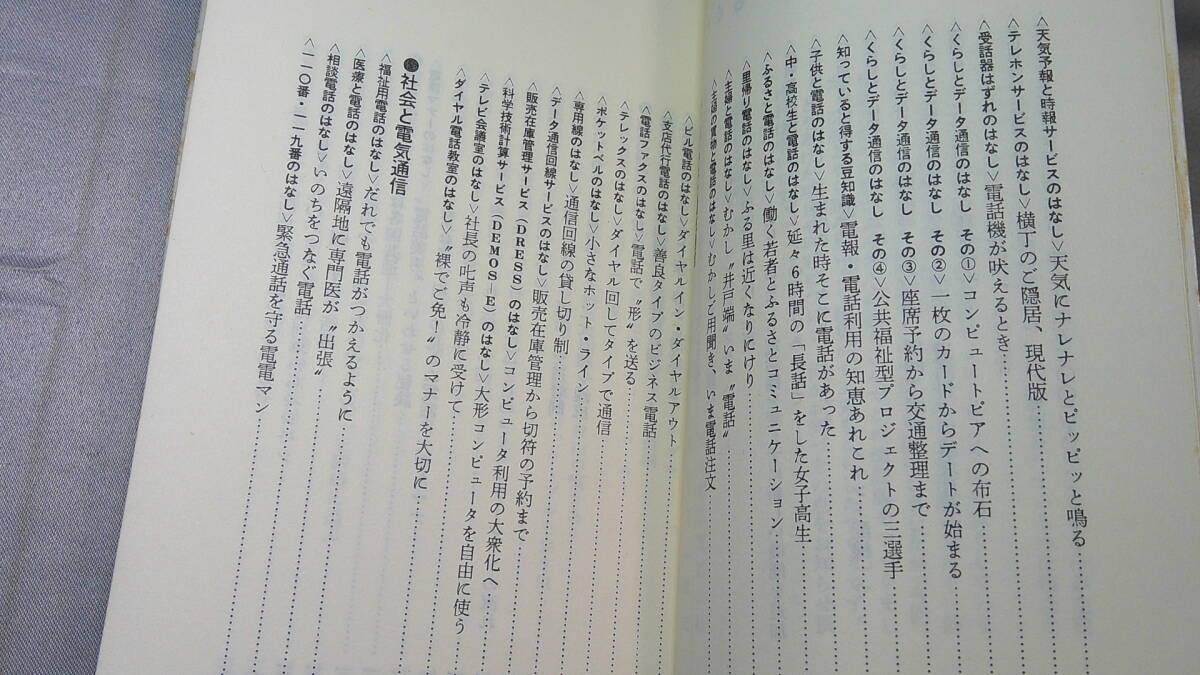 〈天気予報と時報サービスのはなし〉天気にナレナレとピッピッと鳴る
〈テレホンサービスのはなし〉横丁のご隠居、現代版
〈受話器はずれのはなし〉電話機が吠えるとき
〈くらしとデータ通信のはなし その①〉コンピュートピアへの布石
〈くらしとデータ通信のはなし その②〉一枚のカードからデートが始まる
〈くらしとデータ通信のはなし その③〉座席予約から交通整理まで
〈くらしとデータ通信のはなし その④〉公共福祉型プロジェクトの三選手
〈知っていると得する豆知識〉電報・電話利用の知恵あれこれ
〈子供と電話のはなし〉生まれた時そこに電話があった
〈中・高校生と電話のはなし〉延々6時間の「長話」をした女子高生
〈ふるさと電話のはなし〉働く若者とふるさとコミュニケーション
〈里帰り電話のはなし〉ふる里は近くなりにけり
〈主婦と電話のはなし〉むかし〝井戸端〟いま〝電話〟
〈主婦の買物と電話のはなし〉むかしご用聞き、いま電話注文
〈ビル電話のはなし〉ダイヤルイン・ダイヤルアウト
〈支店代行電話のはなし〉善良タイプのビジネス電話
〈電話ファクスのはなし〉電話で〝形〟を送る
〈テレックスのはなし〉ダイヤル回してタイプで通信
〈ポケットベルのはなし〉小さなホット・ライン
〈専用線のはなし〉通信回線の貸し切り制
〈データ通信回線サービスのはなし〉
〈販売在庫管理サービス（DRESS）のはなし〉販売在庫管理から切符の予約まで
〈科学技術計算サービス（DEMOS－E）のはなし〉コンピュータ利用の大衆化へ
〈テレビ会議室のはなし〉社長の叱声も冷静に受けて
〈ダイヤル電話教室のはなし〉〝裸でご免！〟のマナーを大切に
社会と電気通信
〈福祉用電話のはなし〉だれでも電話がつかえるように
〈医療と電話のはなし〉遠隔地に専門医が〝出張〟
〈相談電話のはなし〉いのちをつなぐ電話
〈一一〇番・一一九番のはなし〉緊急通話を守る電電マン